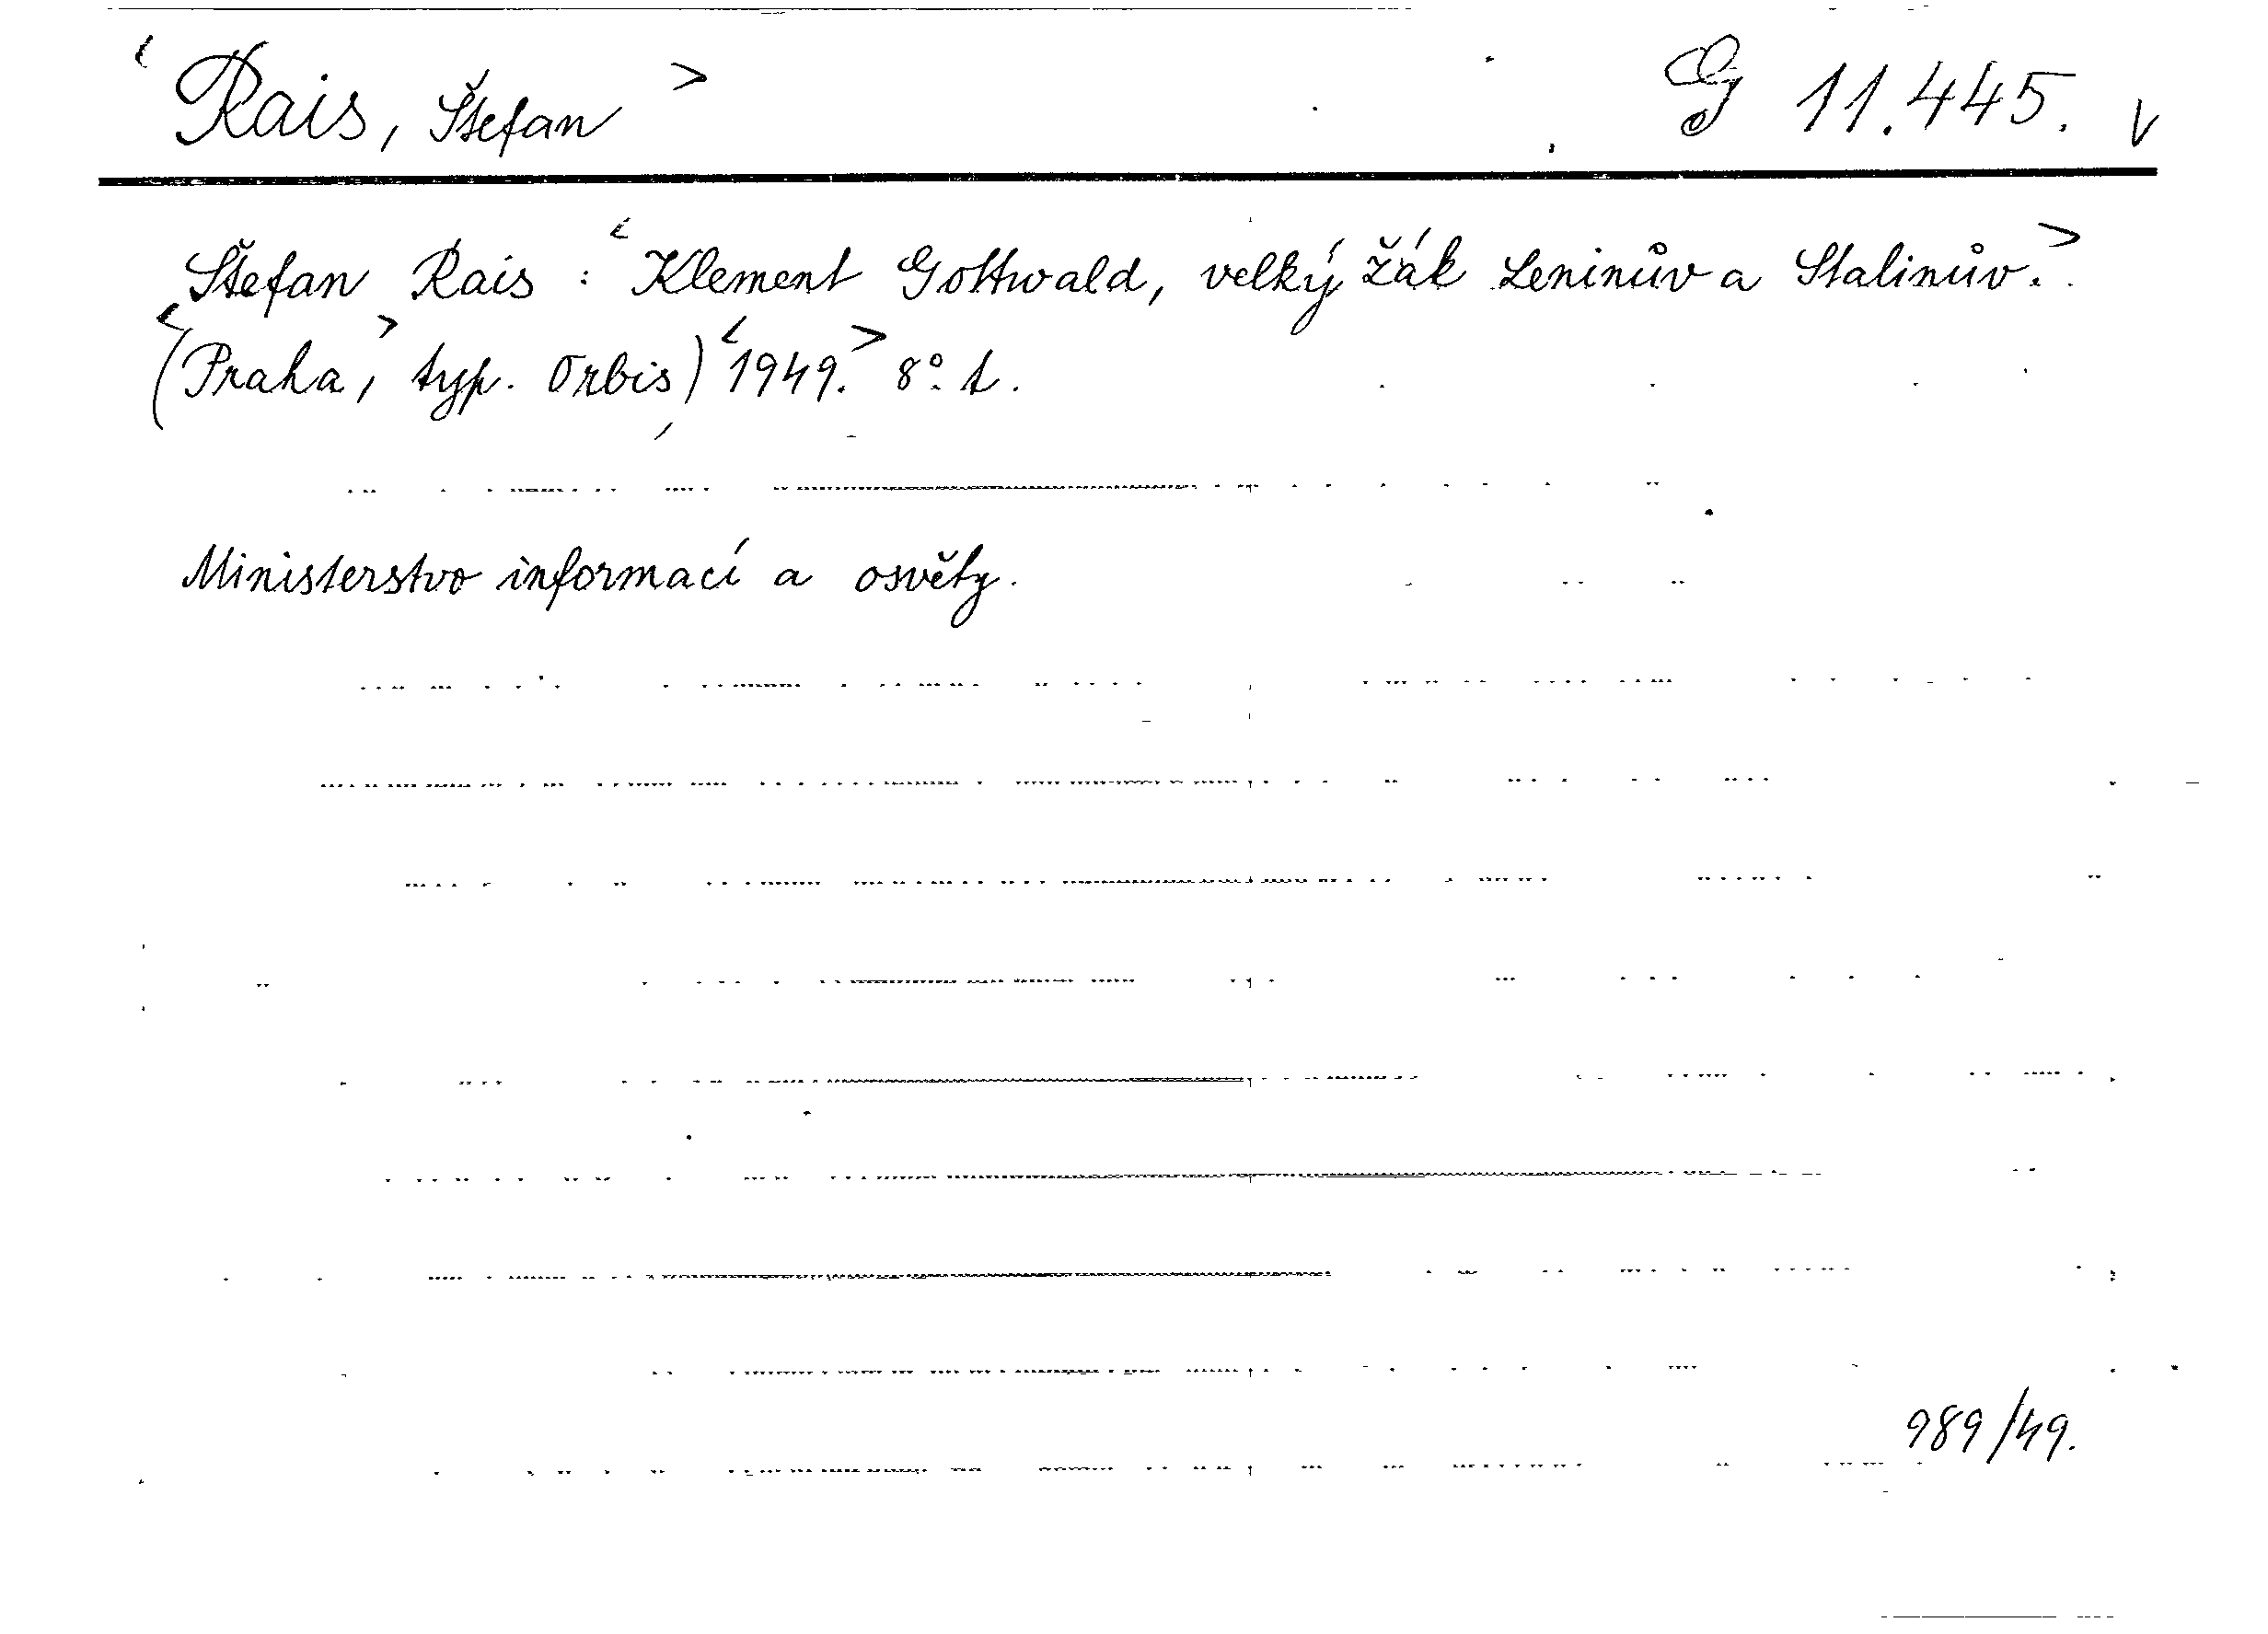 <Rais, Štefan> G 11.445. v
Štefan Rais: <Klement Gottwald, velký žák Leninův a Stalinův.>
<(Praha,> typ. Orbis) <1949.> 8° t.
Ministerstvo informací a osvěty.
989/49.